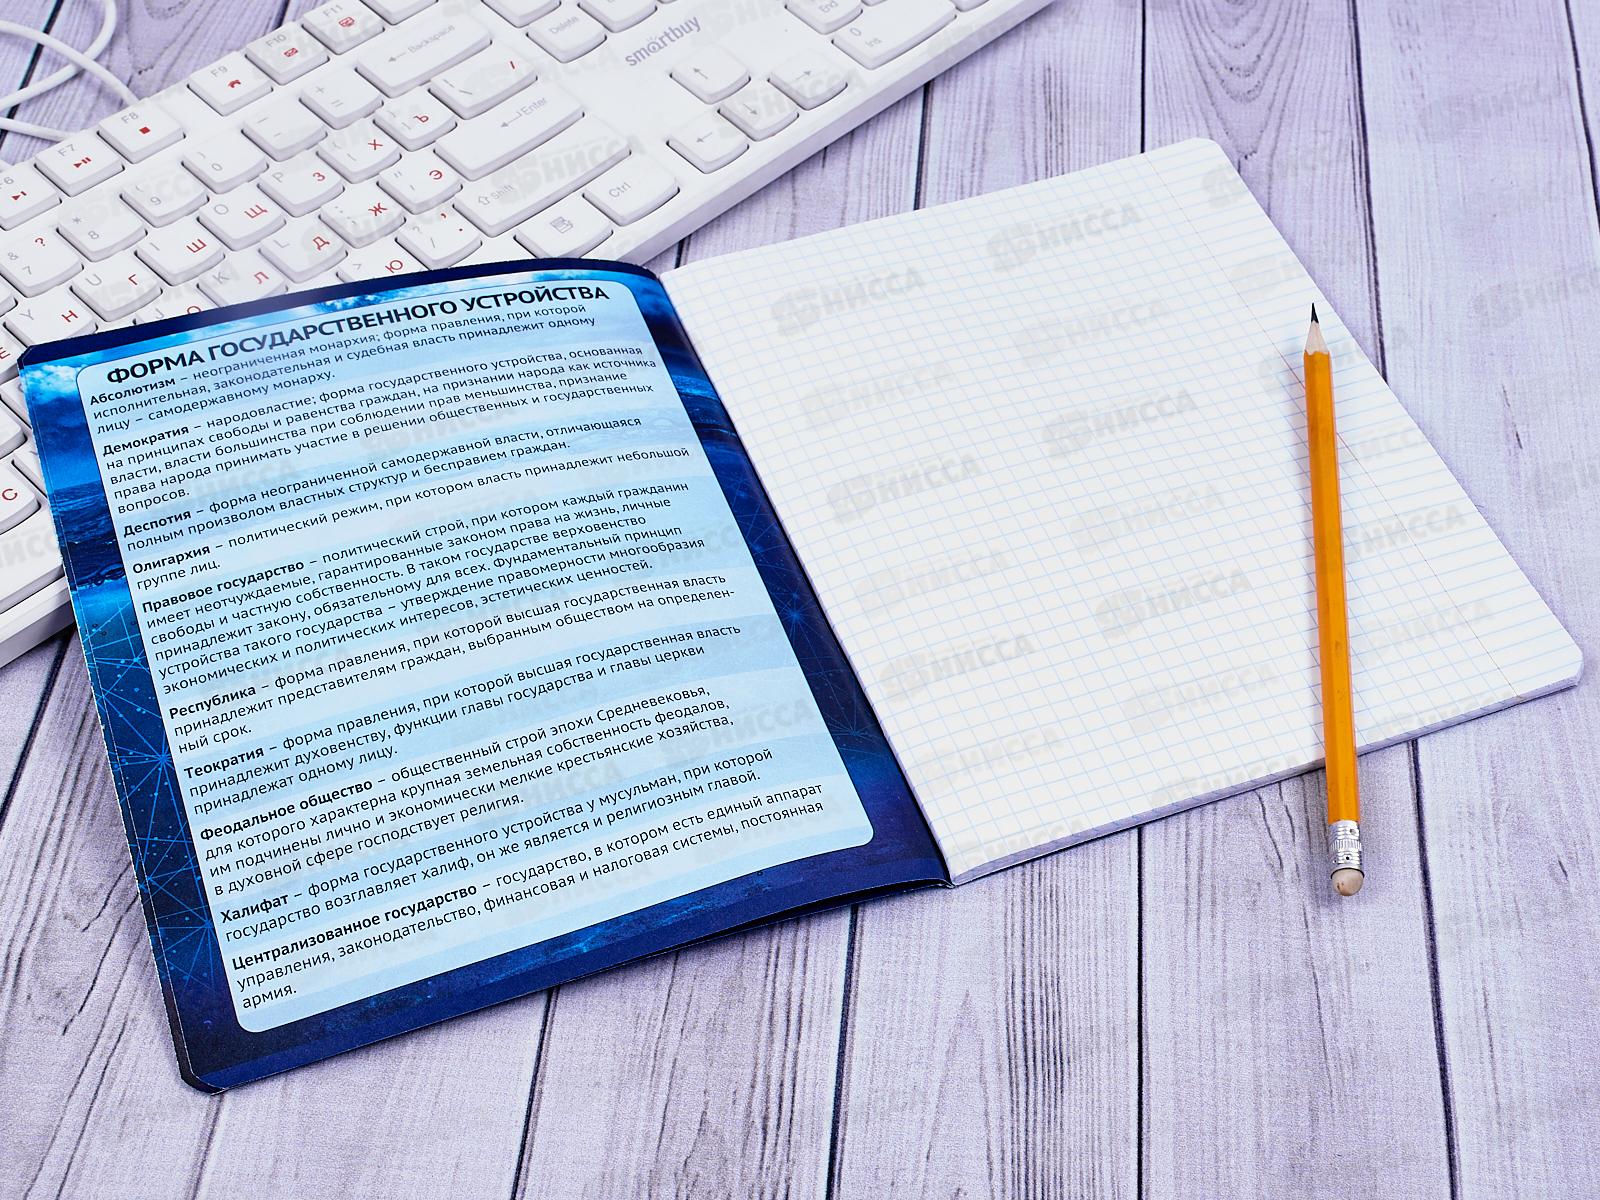 ФОРМА ГОСУДАРСТВЕННОГО УСТРОЙСТВА
Абсолютизм – неограниченная монархия; форма правления, при которой
исполнительная, законодательная и судебная власть принадлежит одному
лицу – самодержавному монарху.
Демократия – народовластие; форма государственного устройства, основанная
на принципах свободы и равенства граждан, на признании народа как источника
власти, власти большинства при соблюдении прав меньшинства, признание
права народа принимать участие в решении общественных и государственных
вопросов.
Деспотия – форма неограниченной самодержавной власти, отличающаяся
полным произволом властных структур и бесправием граждан.
Олигархия – политический режим, при котором власть принадлежит небольшой
группе лиц.
Правовое государство – политический строй, при котором каждый гражданин
имеет неотчуждаемые, гарантированные законом права на жизнь, личные
свободы и частную собственность. В таком государстве верховенство
принадлежит закону, обязательному для всех. Фундаментальный принцип
устройства такого государства – утверждение правомерности многообразия
экономических и политических интересов, эстетических ценностей.
Республика – форма правления, при которой высшая государственная власть
принадлежит представителям граждан, выбранным обществом на определен-
ный срок.
Теократия – форма правления, при которой высшая государственная власть
принадлежит духовенству, функции главы государства и главы церкви
принадлежат одному лицу.
Феодальное общество – общественный строй эпохи Средневековья,
для которого характерна крупная земельная собственность феодалов,
им подчинены лично и экономически мелкие крестьянские хозяйства,
в духовной сфере господствует религия.
Халифат – форма государственного устройства у мусульман, при которой
государство возглавляет халиф, он же является и религиозным главой.
Централизованное государство – государство, в котором есть единый аппарат
управления, законодательство, финансовая и налоговая системы, постоянная
армия.
smartbuy
F6
F7
F8
F9
F10
F11
Backspace
Delete
End
0
Ins
Enter
Shift
Ctrl
НИССА